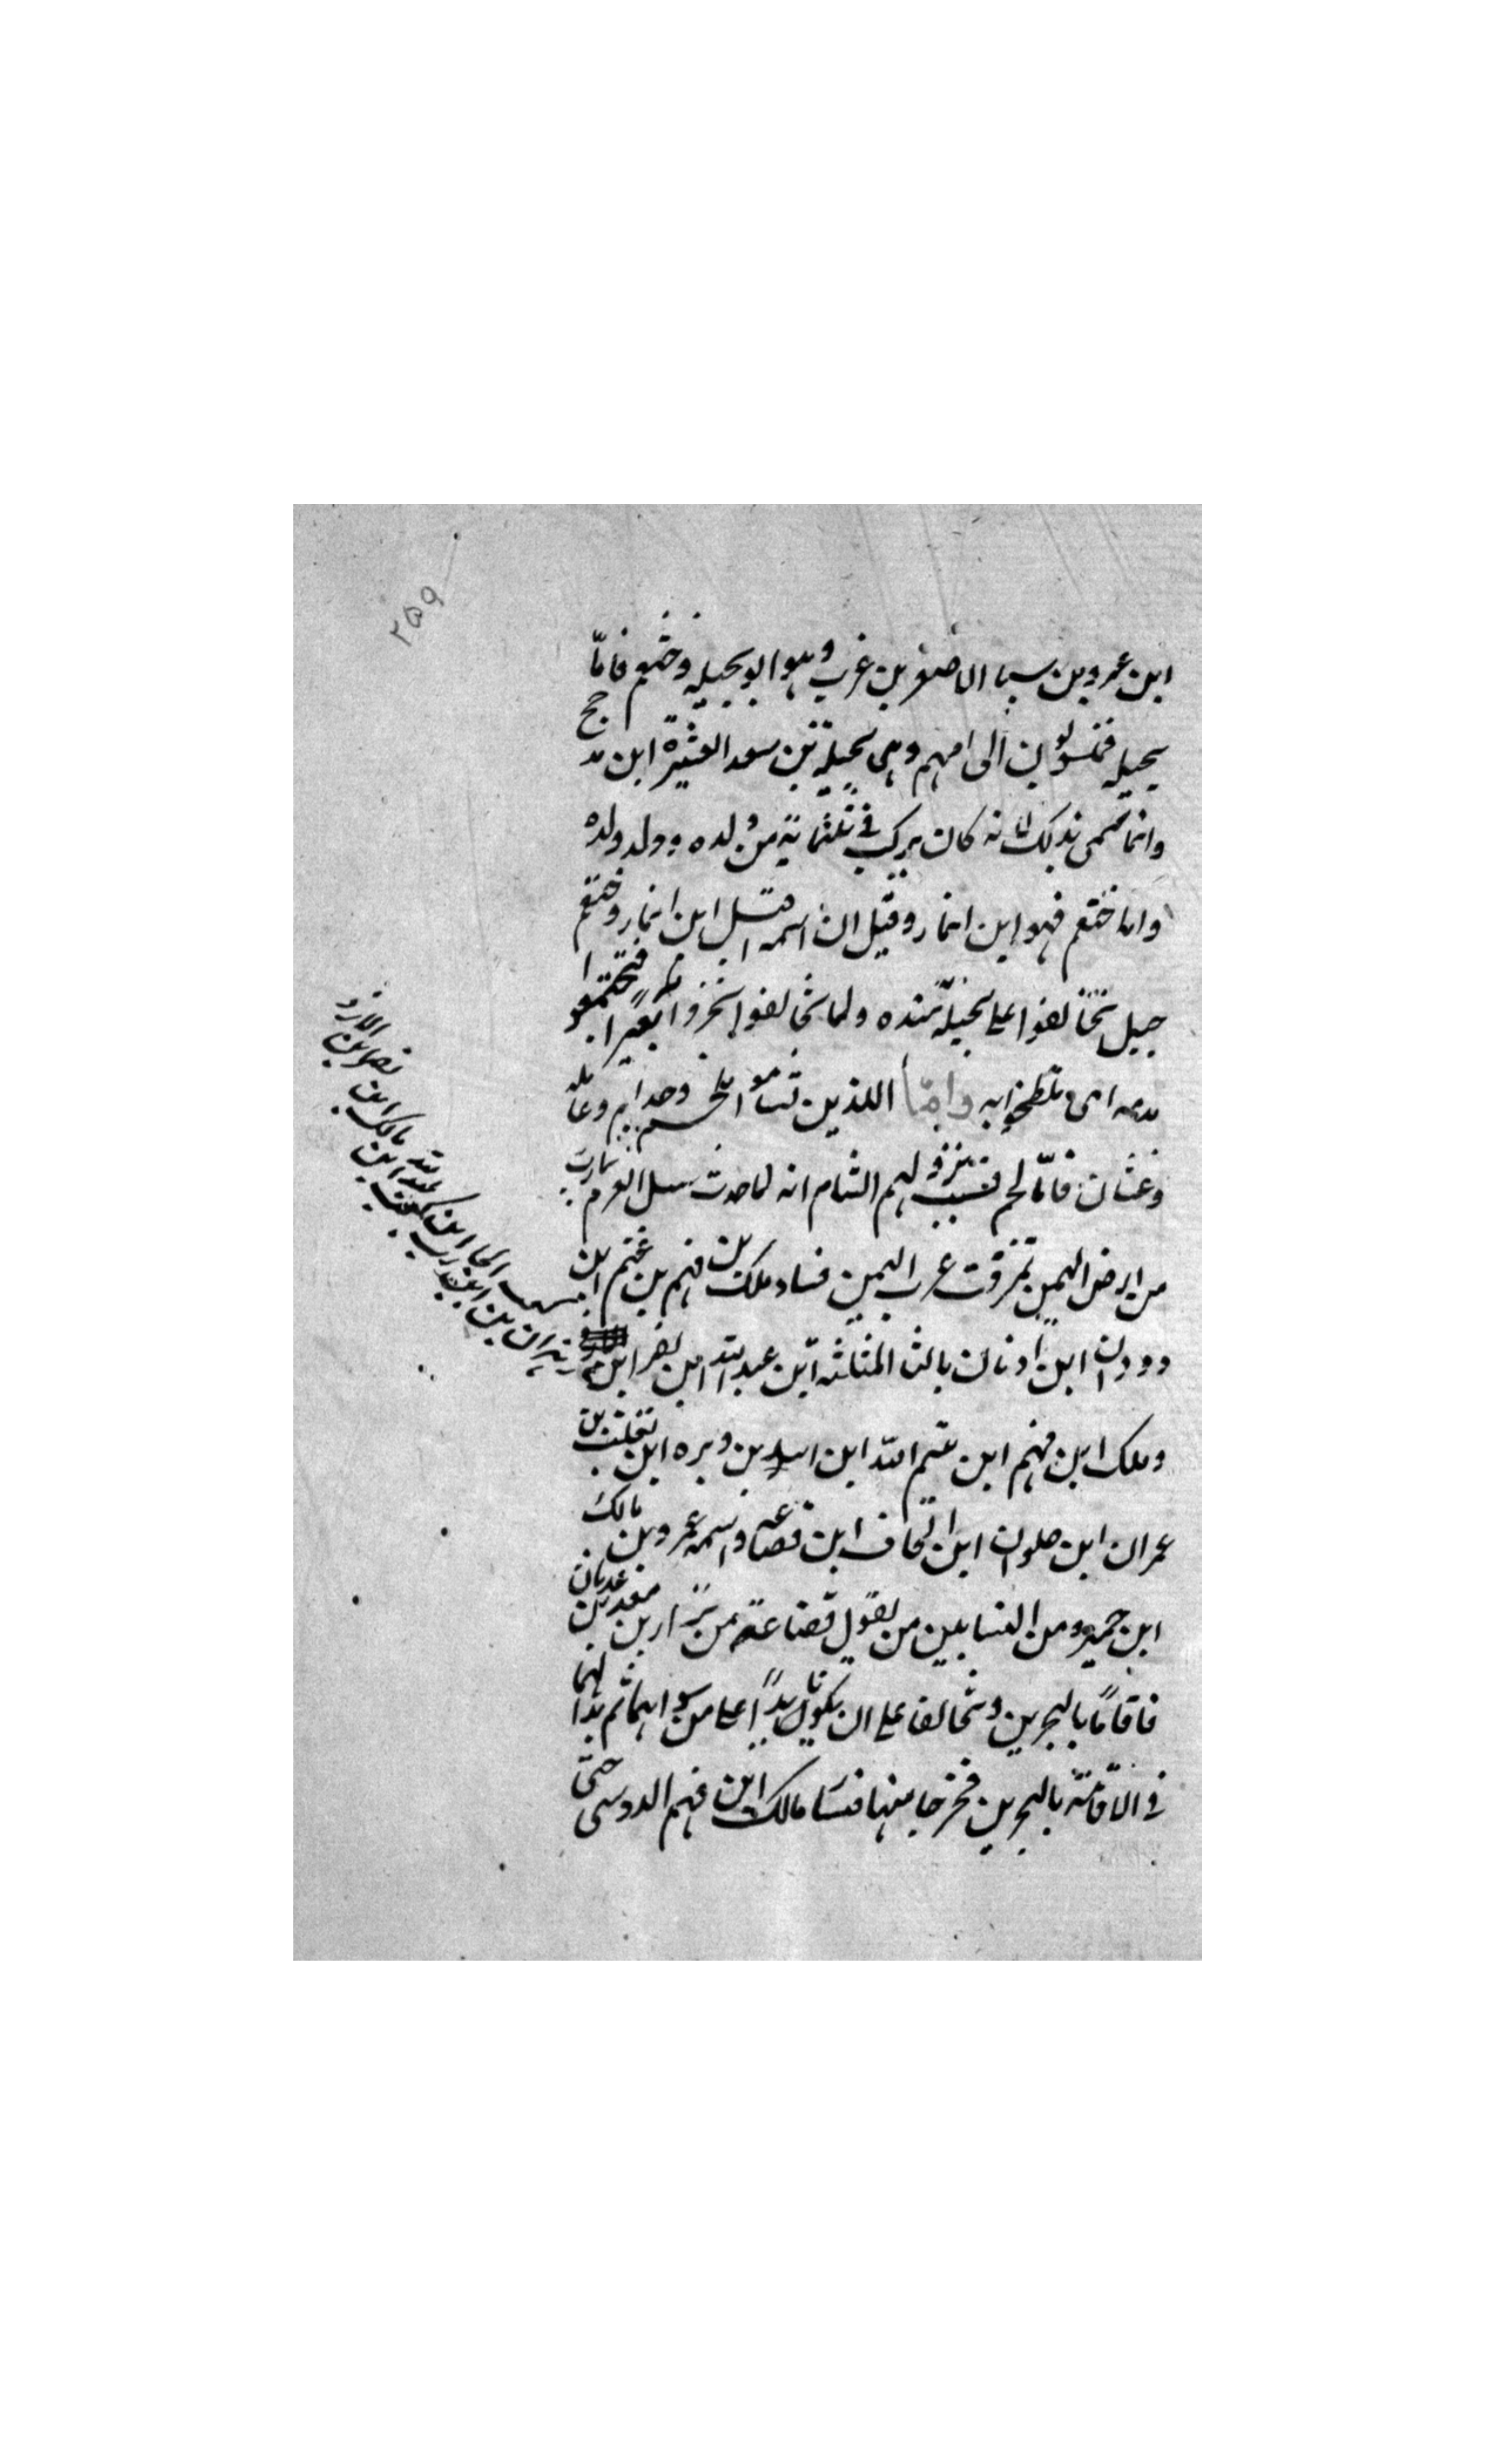 ٢٥٩
ابن عمرو بن سبا الاصغر بن عرب وهو ابو بجيله وخثعم فامّا
بجيله فمنسوبون الى امهم وهى بجيلة بن سعد العشيرة ابن مد حج
وانما سمى بذلك لانه كان يركب فى ثلثمائة من ولده وولد ولده
واما خثعم فهو ابن انمار وقيل ان اسمه اقتل ابن انمار وخثعم
جبل تخالفوا على بجيلة عنده ولما تخالفوا نحروا بعيرا فتخثعموا
بدمه اى تلطخوا به وامّا اللذين تشاموا لخم وجذام وعامله
وغسّان فامّا لخم فسبب نزولهم الشام انه لما حدث سيل العرم بمارب
من ارض اليمن تمزقت عرب اليمن فساد ملك بن فهم بن غنم ابن
دودان ابن اذنان بالثا المثلثه ابن عبد الله ابن نصر ابن
زهران بن ابن
كعب الحا ابن
عبد الله ابن
مالك ابن
نصر ابن الازد
وملك ابن فهم ابن تيم الله ابن اسد بن وبره ابن تغلب بن
عمران ابن حلوان ابن الحاف ابن قضاعه واسمه عمرو بن مالك
ابن حمير ومن النسابين من يقول قضاعة من نزار بن معد بن عدنان
فاقاما بالبحرين وتخالفا على ان يكونا يدًا على من سواهما ثم بدا لهما
فى الاقامة بالبحرين فخرجا منها فسار مالك ابن فهم الدوسى حتى